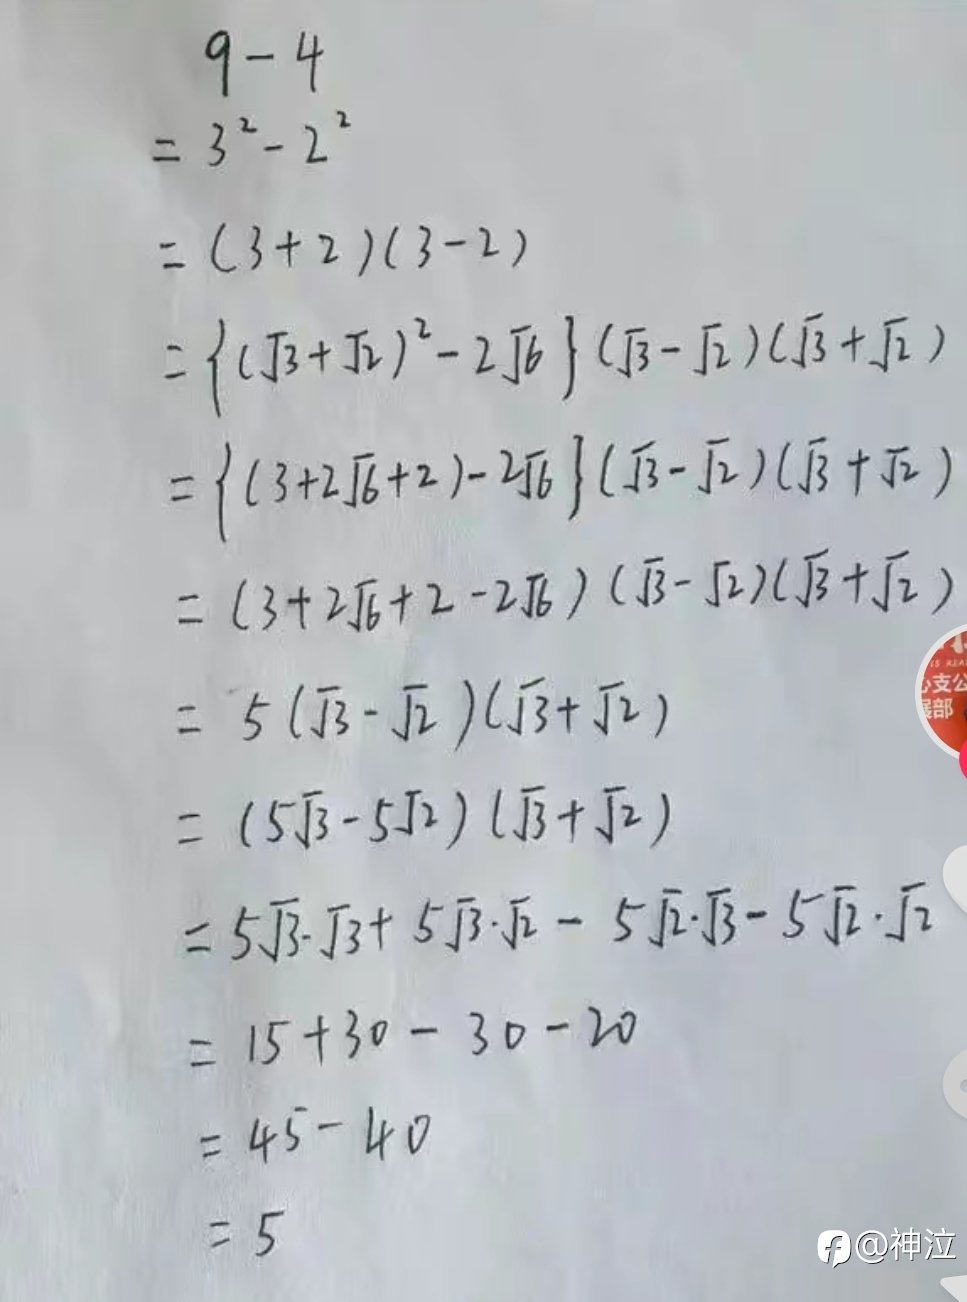 9-4
=3²-2²
=(3+2)(3-2)
={(√3+√2)²-2√6}(√3-√2)(√3+√2)
={(3+2√6+2)-2√6}(√3-√2)(√3+√2)
=(3+2√6+2-2√6)(√3-√2)(√3+√2)
=5(√3-√2)(√3+√2)
=(5√3-5√2)(√3+√2)
=5√3·√3+5√3·√2-5√2·√3-5√2·√2
=15+30-30-20
=45-40
=5
心支公
展部
@神泣